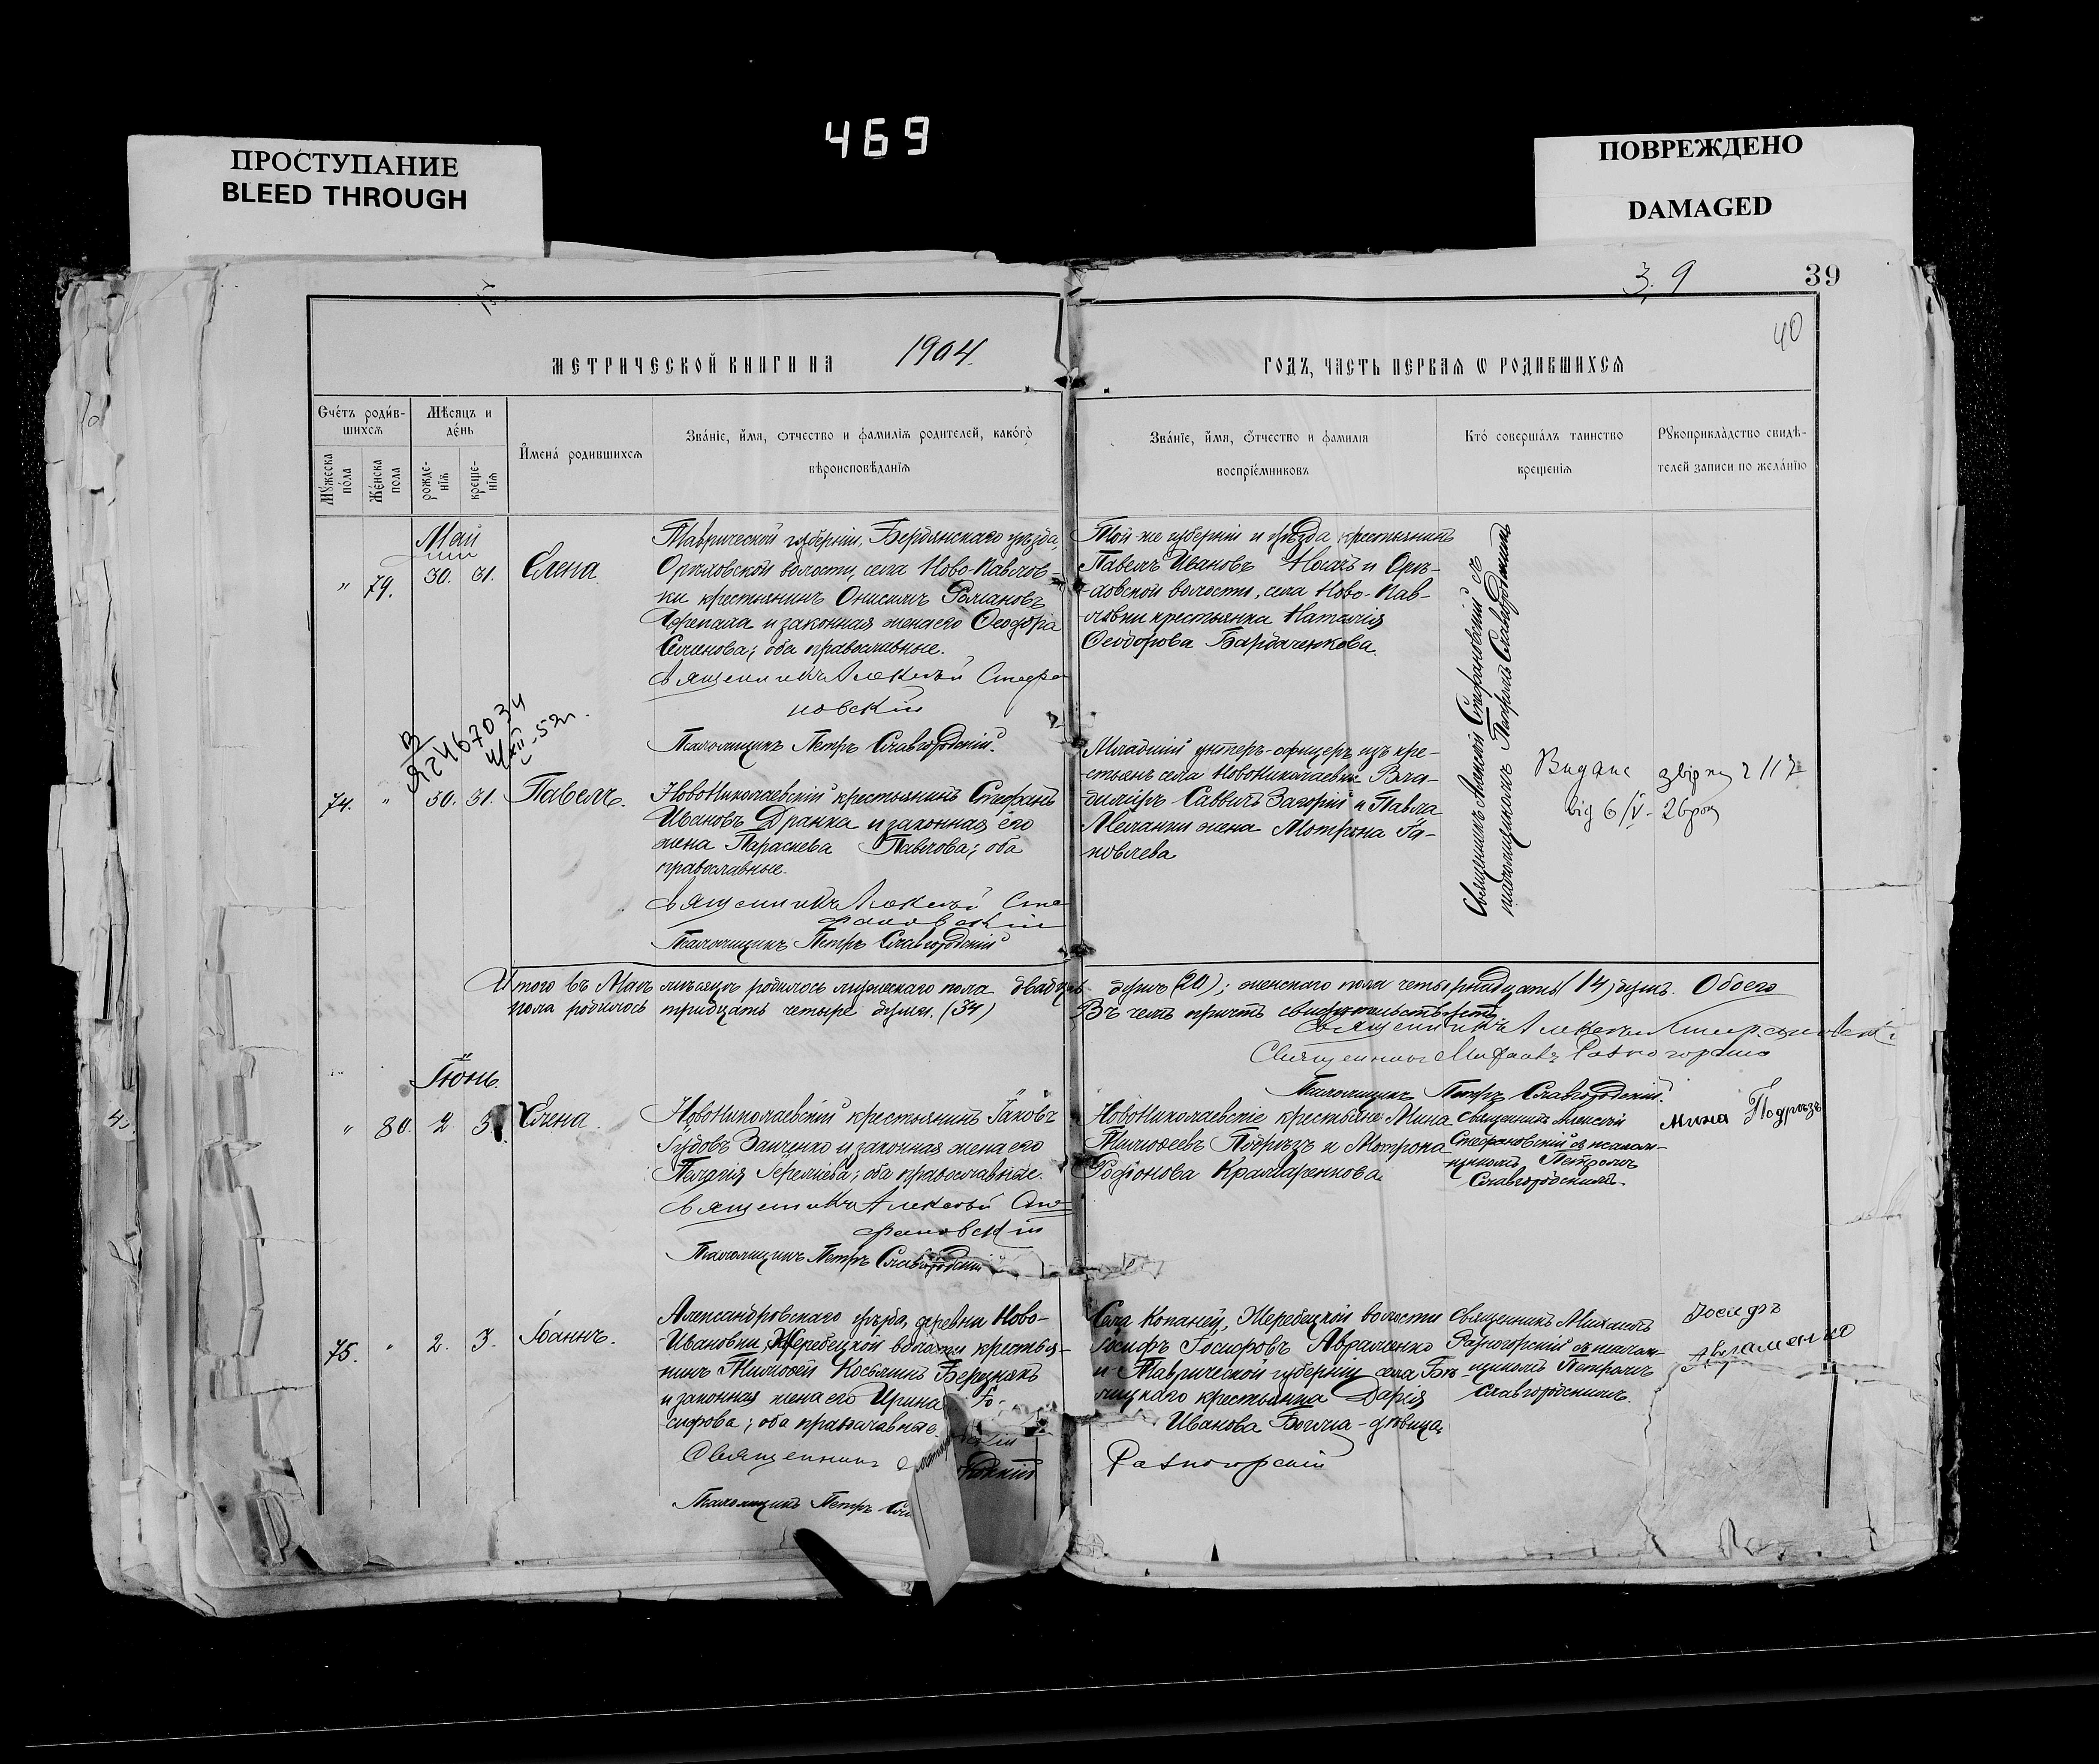 469
ПРОСТУПАНИЕ
BLEED THROUGH
ПОВРЕЖДЕНО
DAMAGED
3.9
39
40
МЕТРИЧЕСКОЙ КНИГИ НА 1904.
ГОДЪ, ЧАСТЬ ПЕРВАЯ Ѡ РОДИВШИХСЯ
Счетъ родив-
шихся
Мѣсяцъ и
день
Имена родившихся
Званіе, имя, отчество и фамилія родителей, какого
вѣроисповѣданія
Мужеска
пола
Женска
пола
рожде-
нія
креще-
нія
Званіе, имя, отчество и фамилія
воспріемниковъ
Кто совершалъ таинство
крещенія
Рукоприкладство свидѣ-
телей записи по желанію
Май
" 79. 30. 31. Елена.
Таврической губерніи, Бердянскаго уѣзда,
Орѣховской волости, села Ново-Павлов-
ки крестьянинъ Онисимъ Романовъ
и законная жена его Ѳеодора
Семенова; оба православные.
Священникъ Алексѣй Стефа
новскій
Псаломщикъ Петръ Славгородскій.
Той-же губерніи и уѣзда крестьянинъ
Павелъ Ивановъ Носачъ и Орѣ-
ховской волости, села Ново-Пав-
ловки крестьянка Наталія
Ѳеодорова Бардаченкова.
Священникъ Алексій Стефановскій съ
псаломщикомъ Петромъ Славгородскимъ
74. " 30. 31. Павелъ.
Новониколаевскій крестьянинъ Стефанъ
Ивановъ Дранка и законная его
жена Параскева Павлова; оба
православные.
Священникъ Алексѣй Сте
фановскій
Псаломщикъ Петръ Славгородскій
Младшій унтеръ-офицеръ изъ кре-
стьянъ села Новониколаевки Вла-
димиръ Саввичъ Загорій и Павла
Меланки жена Мотрона Іа-
ковлева
Видане
від 6/V - 26 рок
Итого въ Маѣ мѣсяцѣ родилось мужескаго пола двадцать душъ (20); женскаго пола четырнадцать (14) душъ. Обоего
пола родилось тридцать четыре души. (34) Въ чемъ причтъ свидѣтельствуетъ
Священникъ Алексѣй Стефановскій
Священникъ Михаилъ Разногорскій
Псаломщикъ Петръ Славгородскій.
Іюнь.
" 80. 2. 3. Елена.
Новониколаевскій крестьянинъ Іаковъ
Заиченко и законная жена его
Пелагія Іереміева; оба православные.
Священникъ Алексѣй Сте
фановскій
Псаломщикъ Петръ Славгородскій
Новониколаевскіе крестьяне: Мина
Тимоѳеевъ Подрѣзъ и Мотрона
Родіонова Крамаренкова.
Священникъ Алексій
Стефановскій съ псалом-
щикомъ Петромъ
Славгородскимъ.
Мина Подрѣзъ
75. " 2. 3. Іоаннъ.
Александровскаго уѣзда, деревни Ново-
Ивановки, Жеребецкой волости крестья-
нинъ Тимоѳей Косьминъ Березнякъ
и законная жена его Ирина Іо-
сифова; оба православные.
Священникъ
Псаломщикъ Петръ
Села Копаней, Жеребецкой волости
Іосифъ Іосифовъ Авраменко
и Таврической губерніи села
крестьянка Дарія
Иванова - дѣвица.
Разногорскій
Священникъ Михаилъ
Разногорскій съ псалом-
щикомъ Петромъ
Славгородскимъ.
Іосифъ
Авраменко